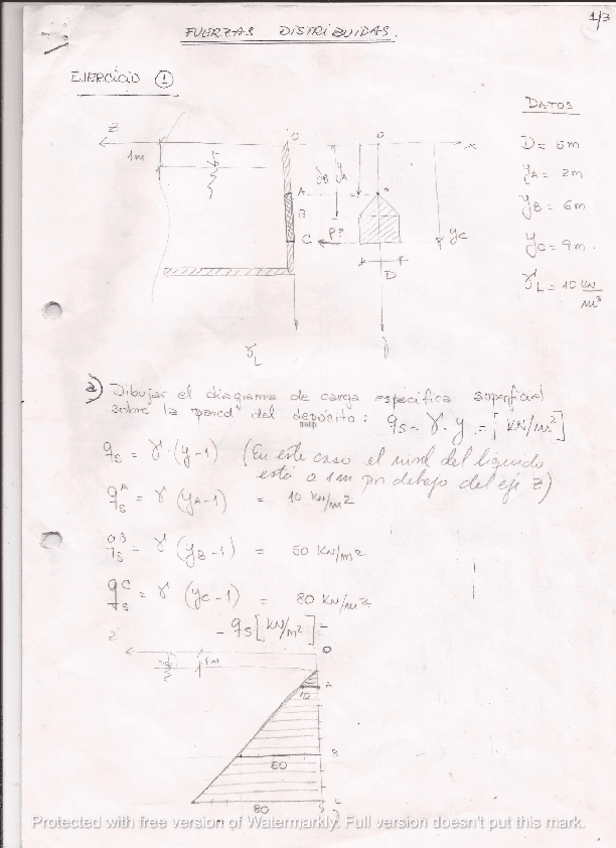 1/3
FUERZAS DISTRIBUIDAS.
EJERCICIO ①
DATOS
D = 5m
yA = 2m
yB = 6m
yC = 9m
γL = 10 KN/m³
Z
1m
O
O
x
yB
yA
A
B
C
P?
yC
D
γL
a) Dibujar el diagrama de carga específica superficial
sobre la pared del depósito: qs = γ · y = [KN/m²]
qs = γ · (y-1) (En este caso el nivel del líquido
está a 1m por debajo del eje Z)
qsA = γ (yA-1) = 10 KN/m²
qsB = γ (yB-1) = 50 KN/m²
qsC = γ (yC-1) = 80 KN/m²
- qs [KN/m²]
Z
O
1m
10
80
Protected with free version of Watermarkly. Full version doesn't put this mark.